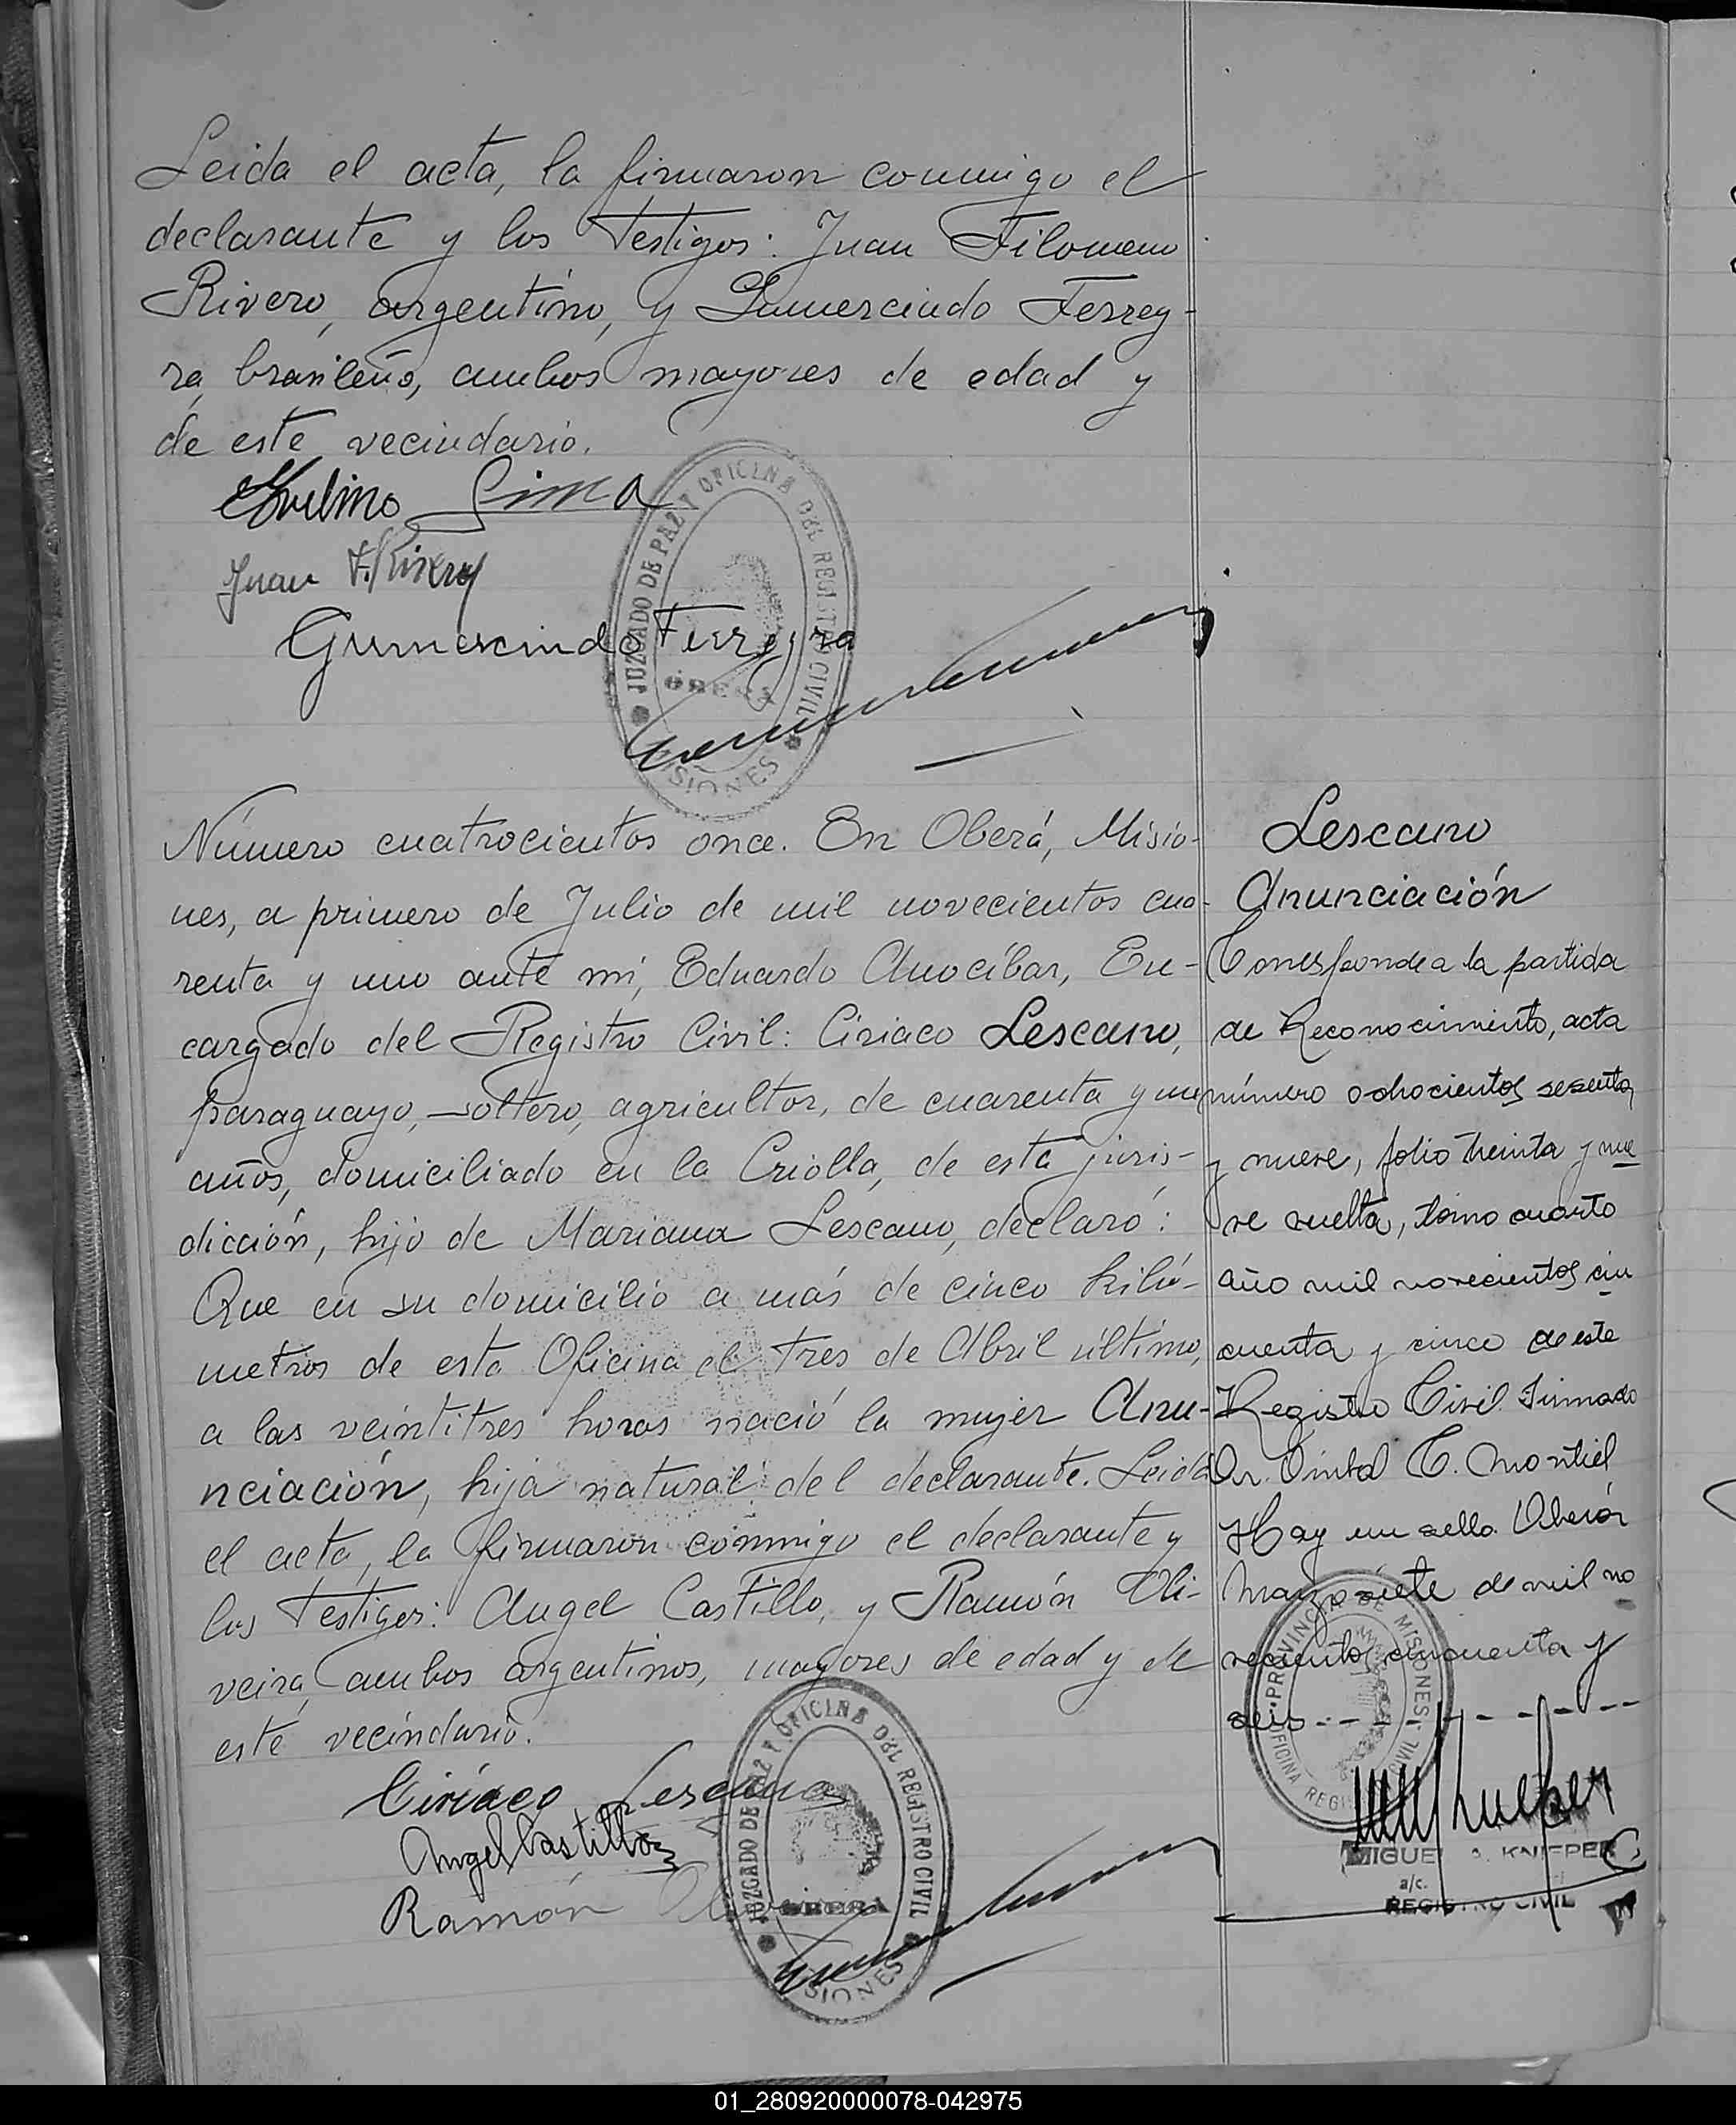 Leida el acta, la firmaron conmigo el
declarante y los testigos: Juan Filomeno
Rivero, argentino, y Gumercindo Ferrey-
ra, brasileño, ambos mayores de edad y
de este vecindario.
Avelino Lima
Juan F. Rivero
Gumercindo Ferreyra
JUZGADO DE PAZ Y OFICINA DEL REGISTRO CIVIL
OBERA
MISIONES
Número cuatrocientos once. En Oberá, Misio-
nes, a primero de Julio de mil novecientos cua-
renta y uno ante mí, Eduardo Anocíbar, En-
cargado del Registro Civil: Ciriaco Lescano,
paraguayo, soltero, agricultor, de cuarenta y un
años, domiciliado en la Criolla, de esta juris-
dicción, hijo de Mariana Lescano, declaró:
Que en su domicilio a más de cinco kiló-
metros de esta Oficina el tres de Abril último,
a las veintitres horas nació la mujer Anu-
nciación, hija natural del declarante. Leida
el acta, la firmaron conmigo el declarante y
los testigos: Angel Castillo, y Ramón Oli-
veira, ambos argentinos, mayores de edad y de
este vecindario.
Ciriaco Lescano
Angel Castillo
Ramón
JUZGADO DE PAZ Y OFICINA DEL REGISTRO CIVIL
OBERA
MISIONES
Lescano
Anunciación
Corresponde a la partida
de Reconocimiento, acta
número ochocientos sesenta
y nueve, folio treinta y nue
ve vuelta, tomo cuarto
año mil novecientos cin
cuenta y cinco de este
Registro Civil. Firmado
C. Montiel
Hay un sello. Oberá,
Marzo siete de mil no
vecientos cincuenta y
seis
PROVINCIA DE MISIONES
OFICINA REGISTRO CIVIL
MIGUEL A. KNIFPER
a/c.
REGISTRO CIVIL
01_280920000078-042975